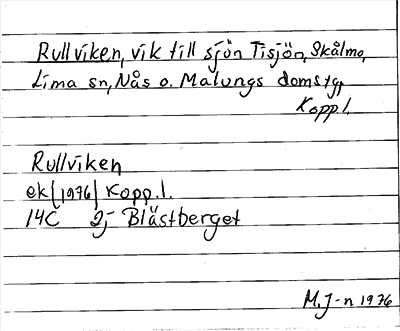 Rullviken, vik till sjön Tisjön, Skålmo,
Lima sn, Nås o. Malungs domstg,
Kopp.l.
Rullviken
ek (1976) Kopp.l.
14C 2j Blästberget
M.J-n 1976